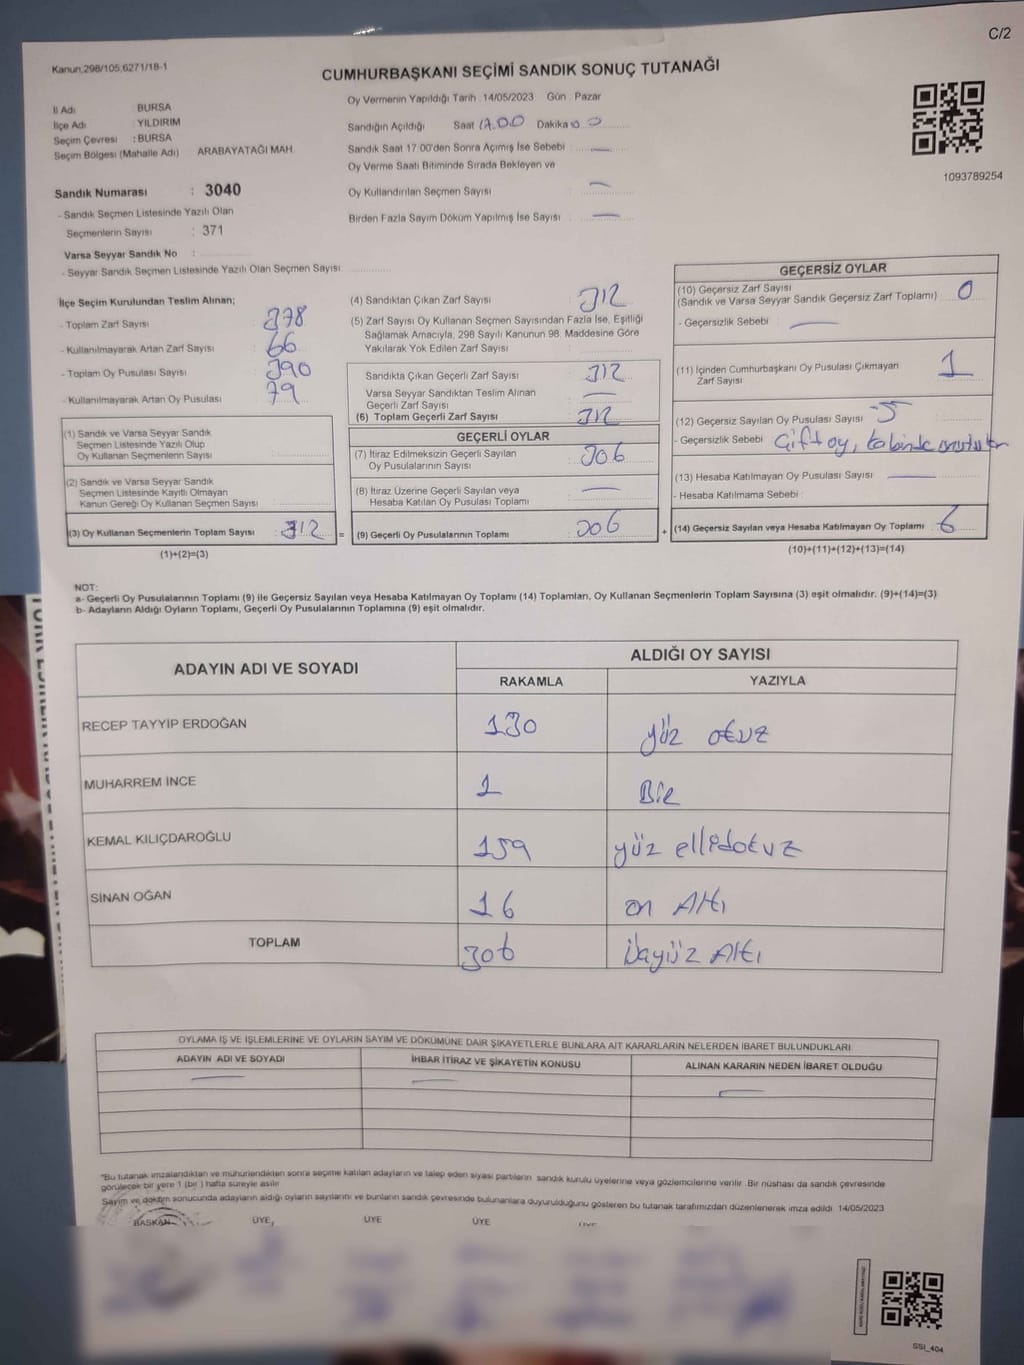 C/2
Kanun;298/105,6271/18-1
CUMHURBAŞKANI SEÇİMİ SANDIK SONUÇ TUTANAĞI
İl Adı : BURSA
İlçe Adı : YILDIRIM
Seçim Çevresi : BURSA
Seçim Bölgesi (Mahalle Adı) : ARABAYATAĞI MAH.
Oy Vermenin Yapıldığı Tarih : 14/05/2023 Gün : Pazar
Sandığın Açıldığı Saat 17.00 Dakika
Sandık Saat 17:00'den Sonra Açımış İse Sebebi : —
Oy Verme Saati Bitiminde Sırada Bekleyen ve
Oy Kullandırılan Seçmen Sayısı : —
Birden Fazla Sayım Döküm Yapılmış İse Sayısı : —
1093789254
Sandık Numarası : 3040
- Sandık Seçmen Listesinde Yazılı Olan
Seçmenlerin Sayısı : 371
Varsa Seyyar Sandık No :
- Seyyar Sandık Seçmen Listesinde Yazılı Olan Seçmen Sayısı:
İlçe Seçim Kurulundan Teslim Alınan;
- Toplam Zarf Sayısı : 378
- Kullanılmayarak Artan Zarf Sayısı : 66
- Toplam Oy Pusulası Sayısı : 390
- Kullanılmayarak Artan Oy Pusulası : 79
(1) Sandık ve Varsa Seyyar Sandık
Seçmen Listesinde Yazılı Olup
Oy Kullanan Seçmenlerin Sayısı :
(2) Sandık ve Varsa Seyyar Sandık
Seçmen Listesinde Kayıtlı Olmayan
Kanun Gereği Oy Kullanan Seçmen Sayısı :
(3) Oy Kullanan Seçmenlerin Toplam Sayısı : 312 =
(1)+(2)=(3)
(4) Sandıktan Çıkan Zarf Sayısı : 312
(5) Zarf Sayısı Oy Kullanan Seçmen Sayısından Fazla İse, Eşitliği
Sağlamak Amacıyla, 298 Sayılı Kanunun 98. Maddesine Göre
Yakılarak Yok Edilen Zarf Sayısı :
Sandıkta Çıkan Geçerli Zarf Sayısı : 312
Varsa Seyyar Sandıktan Teslim Alınan
Geçerli Zarf Sayısı : —
(6) Toplam Geçerli Zarf Sayısı : 312
GEÇERLİ OYLAR
(7) İtiraz Edilmeksizin Geçerli Sayılan
Oy Pusulalarının Sayısı : 306
(8) İtiraz Üzerine Geçerli Sayılan veya
Hesaba Katılan Oy Pusulası Toplamı : —
(9) Geçerli Oy Pusulalarının Toplamı : 306 +
GEÇERSİZ OYLAR
(10) Geçersiz Zarf Sayısı
(Sandık ve Varsa Seyyar Sandık Geçersiz Zarf Toplamı) : 0
- Geçersizlik Sebebi : —
(11) İçinden Cumhurbaşkanı Oy Pusulası Çıkmayan
Zarf Sayısı : 1
(12) Geçersiz Sayılan Oy Pusulası Sayısı : 5
- Geçersizlik Sebebi : Çift oy,
(13) Hesaba Katılmayan Oy Pusulası Sayısı : —
- Hesaba Katılmama Sebebi :
(14) Geçersiz Sayılan veya Hesaba Katılmayan Oy Toplamı : 6
(10)+(11)+(12)+(13)=(14)
NOT:
a- Geçerli Oy Pusulalarının Toplamı (9) ile Geçersiz Sayılan veya Hesaba Katılmayan Oy Toplamı (14) Toplamları, Oy Kullanan Seçmenlerin Toplam Sayısına (3) eşit olmalıdır. (9)+(14)=(3)
b- Adayların Aldığı Oyların Toplamı, Geçerli Oy Pusulalarının Toplamına (9) eşit olmalıdır.
ADAYIN ADI VE SOYADI
ALDIĞI OY SAYISI
RAKAMLA YAZIYLA
RECEP TAYYİP ERDOĞAN 130 yüz otuz
MUHARREM İNCE 1 Bir
KEMAL KILIÇDAROĞLU 159 yüz ellidokuz
SİNAN OĞAN 16 on Altı
TOPLAM 306 Üçyüz Altı
OYLAMA İŞ VE İŞLEMLERİNE VE OYLARIN SAYIM VE DÖKÜMÜNE DAİR ŞİKAYETLERLE BUNLARA AİT KARARLARIN NELERDEN İBARET BULUNDUKLARI
ADAYIN ADI VE SOYADI İHBAR İTİRAZ VE ŞİKAYETİN KONUSU ALINAN KARARIN NEDEN İBARET OLDUĞU
— — —
"Bu tutanak imzalandıktan ve mühürlendikten sonra seçime katılan adayların ve talep eden siyasi partilerin sandık kurulu üyelerine veya gözlemcilerine verilir. Bir nüshası da sandık çevresinde
görülecek bir yere 1 (bir ) hafta süreyle asılır
Sayım ve döküm sonucunda adayların aldığı oyların sayılarını ve bunların sandık çevresinde bulunanlara duyurulduğunu gösteren bu tutanak tarafımızdan düzenlenerek imza edildi. 14/05/2023
BAŞKAN ÜYE ÜYE ÜYE ÜYE
SSI_404